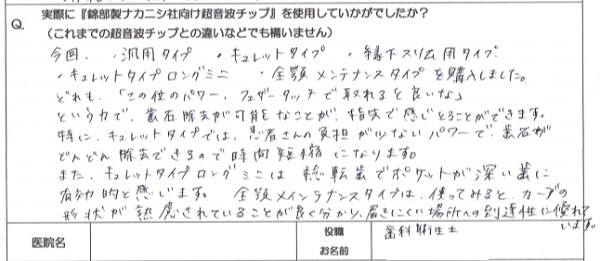 Q.
実際に『錦部製ナカニシ社向け超音波チップ』を使用していかがでしたか？
（これまでの超音波チップとの違いなどでも構いません）
今回、・汎用タイプ ・キュレットタイプ ・縁下スリム用タイプ
・キュレットタイプロングミニ ・全顎メンテナンスタイプを購入しました。
どれも、「この位のパワー、フェザータッチで取れると良いな」
という力で、歯石除去が可能なことが、指先で感じとることができます。
特に、キュレットタイプでは、患者さんの負担が少ないパワーで、歯石が
どんどん除去できるので時間短縮になります。
また、キュレットタイプロングミニは捻転歯でポケットが深い歯に
有効的と感じます。 全顎メインテナンスタイプは、使ってみると、カーブの
形状が熟慮されていることが良く分かり、届きにくい場所への到達性に優れて
います。
医院名
役職
お名前
歯科衛生士